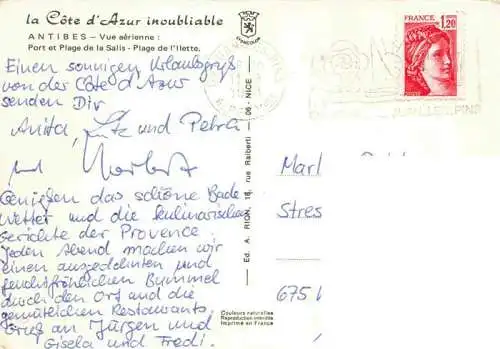 la Côte d'Azur inoubliable
ANTIBES – Vue aérienne :
Port et Plage de la Salis - Plage de l'Ilette.
Einen sonnigen Urlaubsgruß
von der Côte d'Azur
senden Dir
Anita, Lutz und Petra
und Norbert
Genießen das schöne Bade
Wetter und die kulinarischen
Gerichte der Provence.
Jeden Abend machen wir
einen ausgedehnten und
feuchtfröhlichen Bummel
durch den Ort und die
gemütlichen Restaurants.
Gruß an Jürgen und
Gisela und Fredi.
Ed. A. RION, 18, rue Raiberti — 06 - NICE
Couleurs naturelles
Reproduction interdite
Imprimé en France
1,20
JUAN LES PINS
Marl
Stres
675